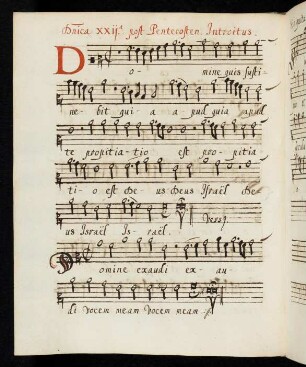 Dn̄ica XXII.ᵃ post Pentecosten. Introitus.
Do- mine quis susti-
ne- bit qui- a a- pud quia apud
te propitia- tio est pro- pitia-
ti- o est De- us Deus Israël De-
us Israël Is- raël. Versꝫ.
Domine exaudi ex- au-
di vocem meam vocem meam.